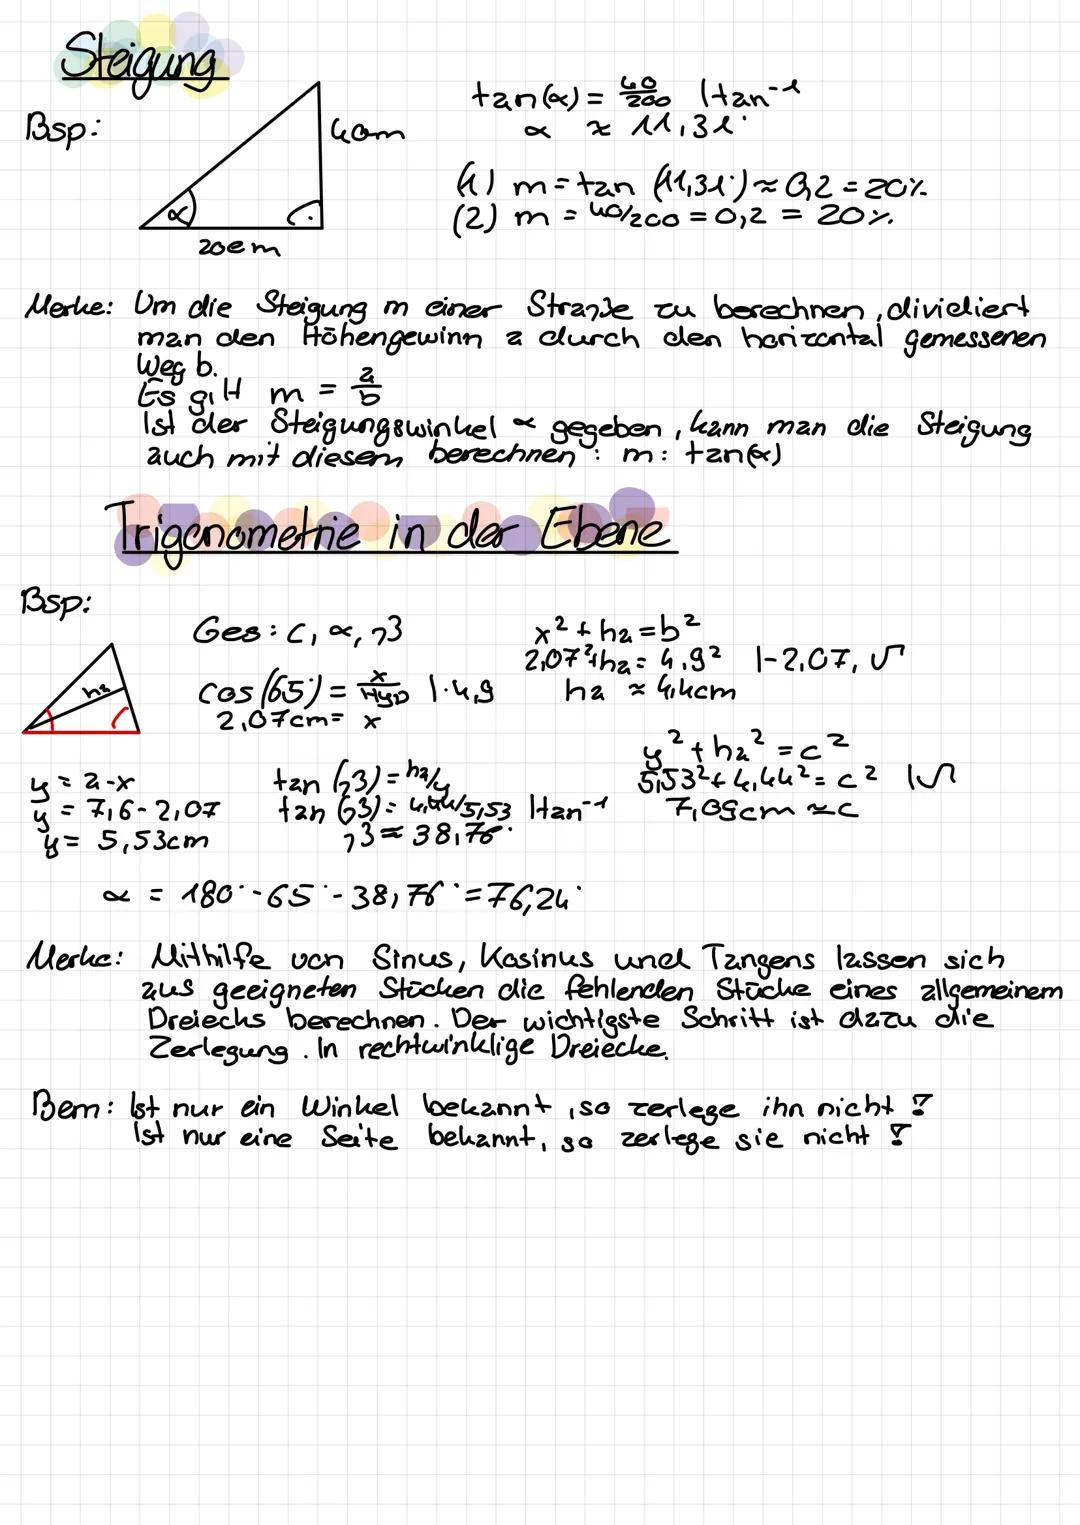 Steigung
Bsp:
α
40m
20em
tan(α) = 40/200 |tan⁻¹
α ≈ 11,31°
(1) m = tan (11,31°) ≈ 0,2 = 20%
(2) m = 40/200 = 0,2 = 20%.
Merke: Um die Steigung m einer Straße zu berechnen, dividiert
man den Höhengewinn a durch den horizontal gemessenen
Weg b.
Es gilt m = a/b
Ist der Steigungswinkel α gegeben, kann man die Steigung
auch mit diesem berechnen: m: tan(α)
Trigonometrie in der Ebene
Bsp:
ha
Ges: c, α, β
cos (65°) = x/Hyp |·4,9
2,07cm = x
x² + ha = b²
2,07² + ha = 4,9² |-2,07, √
ha ≈ 4,4cm
y = a-x
y = 7,6 - 2,07
y = 5,53cm
tan (β) = ha/y
tan (β) = 4,44/5,53 |tan⁻¹
β ≈ 38,76°
y² + ha² = c²
5,53² + 4,44² = c² |√
7,09cm ≈ c
α = 180° - 65° - 38,76° = 76,24°
Merke: Mithilfe von Sinus, Kosinus und Tangens lassen sich
aus geeigneten Stücken die fehlenden Stücke eines allgemeinem
Dreiecks berechnen. Der wichtigste Schritt ist dazu die
Zerlegung. In rechtwinklige Dreiecke.
Bem: Ist nur ein Winkel bekannt, so zerlege ihn nicht !
Ist nur eine Seite bekannt, so zerlege sie nicht !